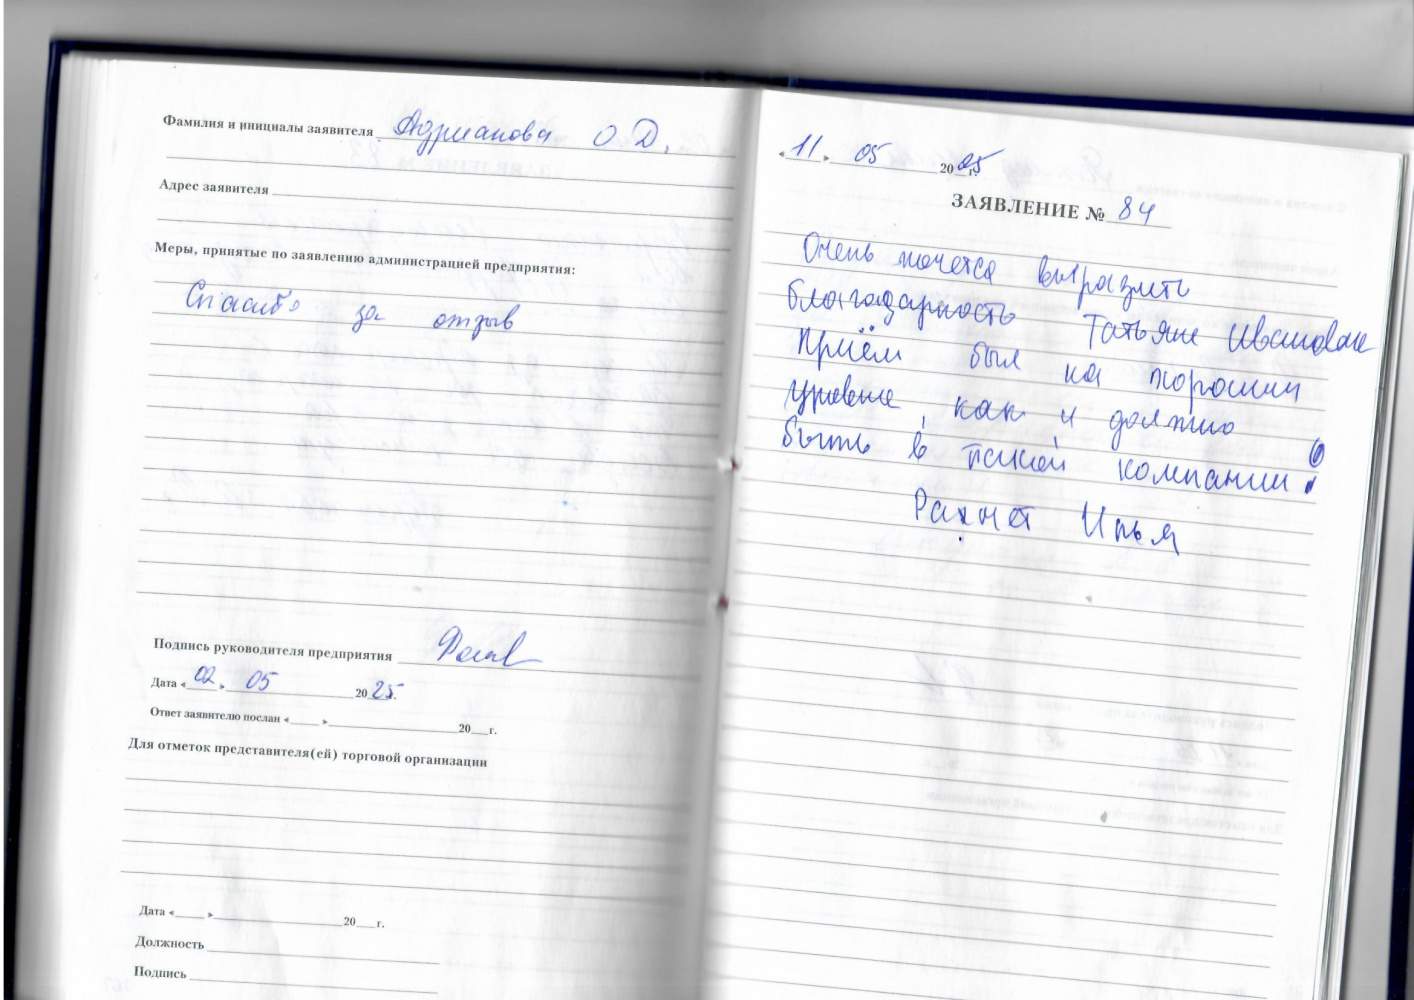 Фамилия и инициалы заявителя Адрианова О.Д.
Адрес заявителя
Меры, принятые по заявлению администрацией предприятия:
Спасибо за отзыв
Подпись руководителя предприятия
Дата «02» 05 2025г.
Ответ заявителю послан «____» ____ 20__г.
Для отметок представителя(ей) торговой организации
Дата «____» ____ 20__г.
Должность
Подпись
«11» 05 2025г.
ЗАЯВЛЕНИЕ № 84
Очень хочется выразить
благодарность Татьяне Ивановне
Приём был на хорошем
уровне, как и должно
быть в такой компании!
Рахмет Илья